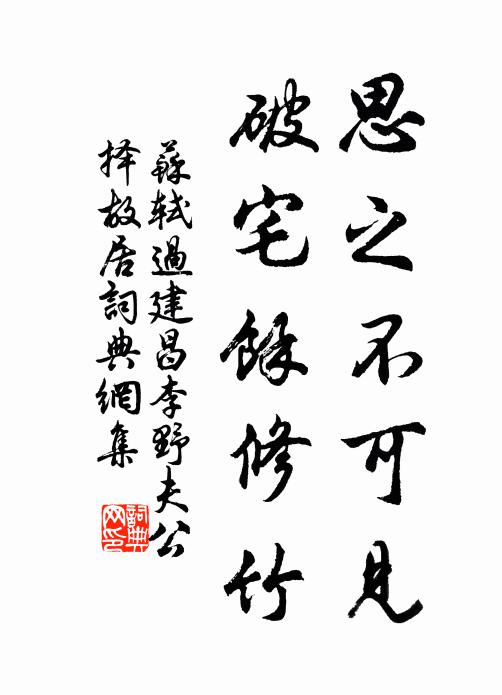 思之不可見
破宅餘修竹
蘇軾過建昌李野夫公
择故居詞典網集
詞典
网印